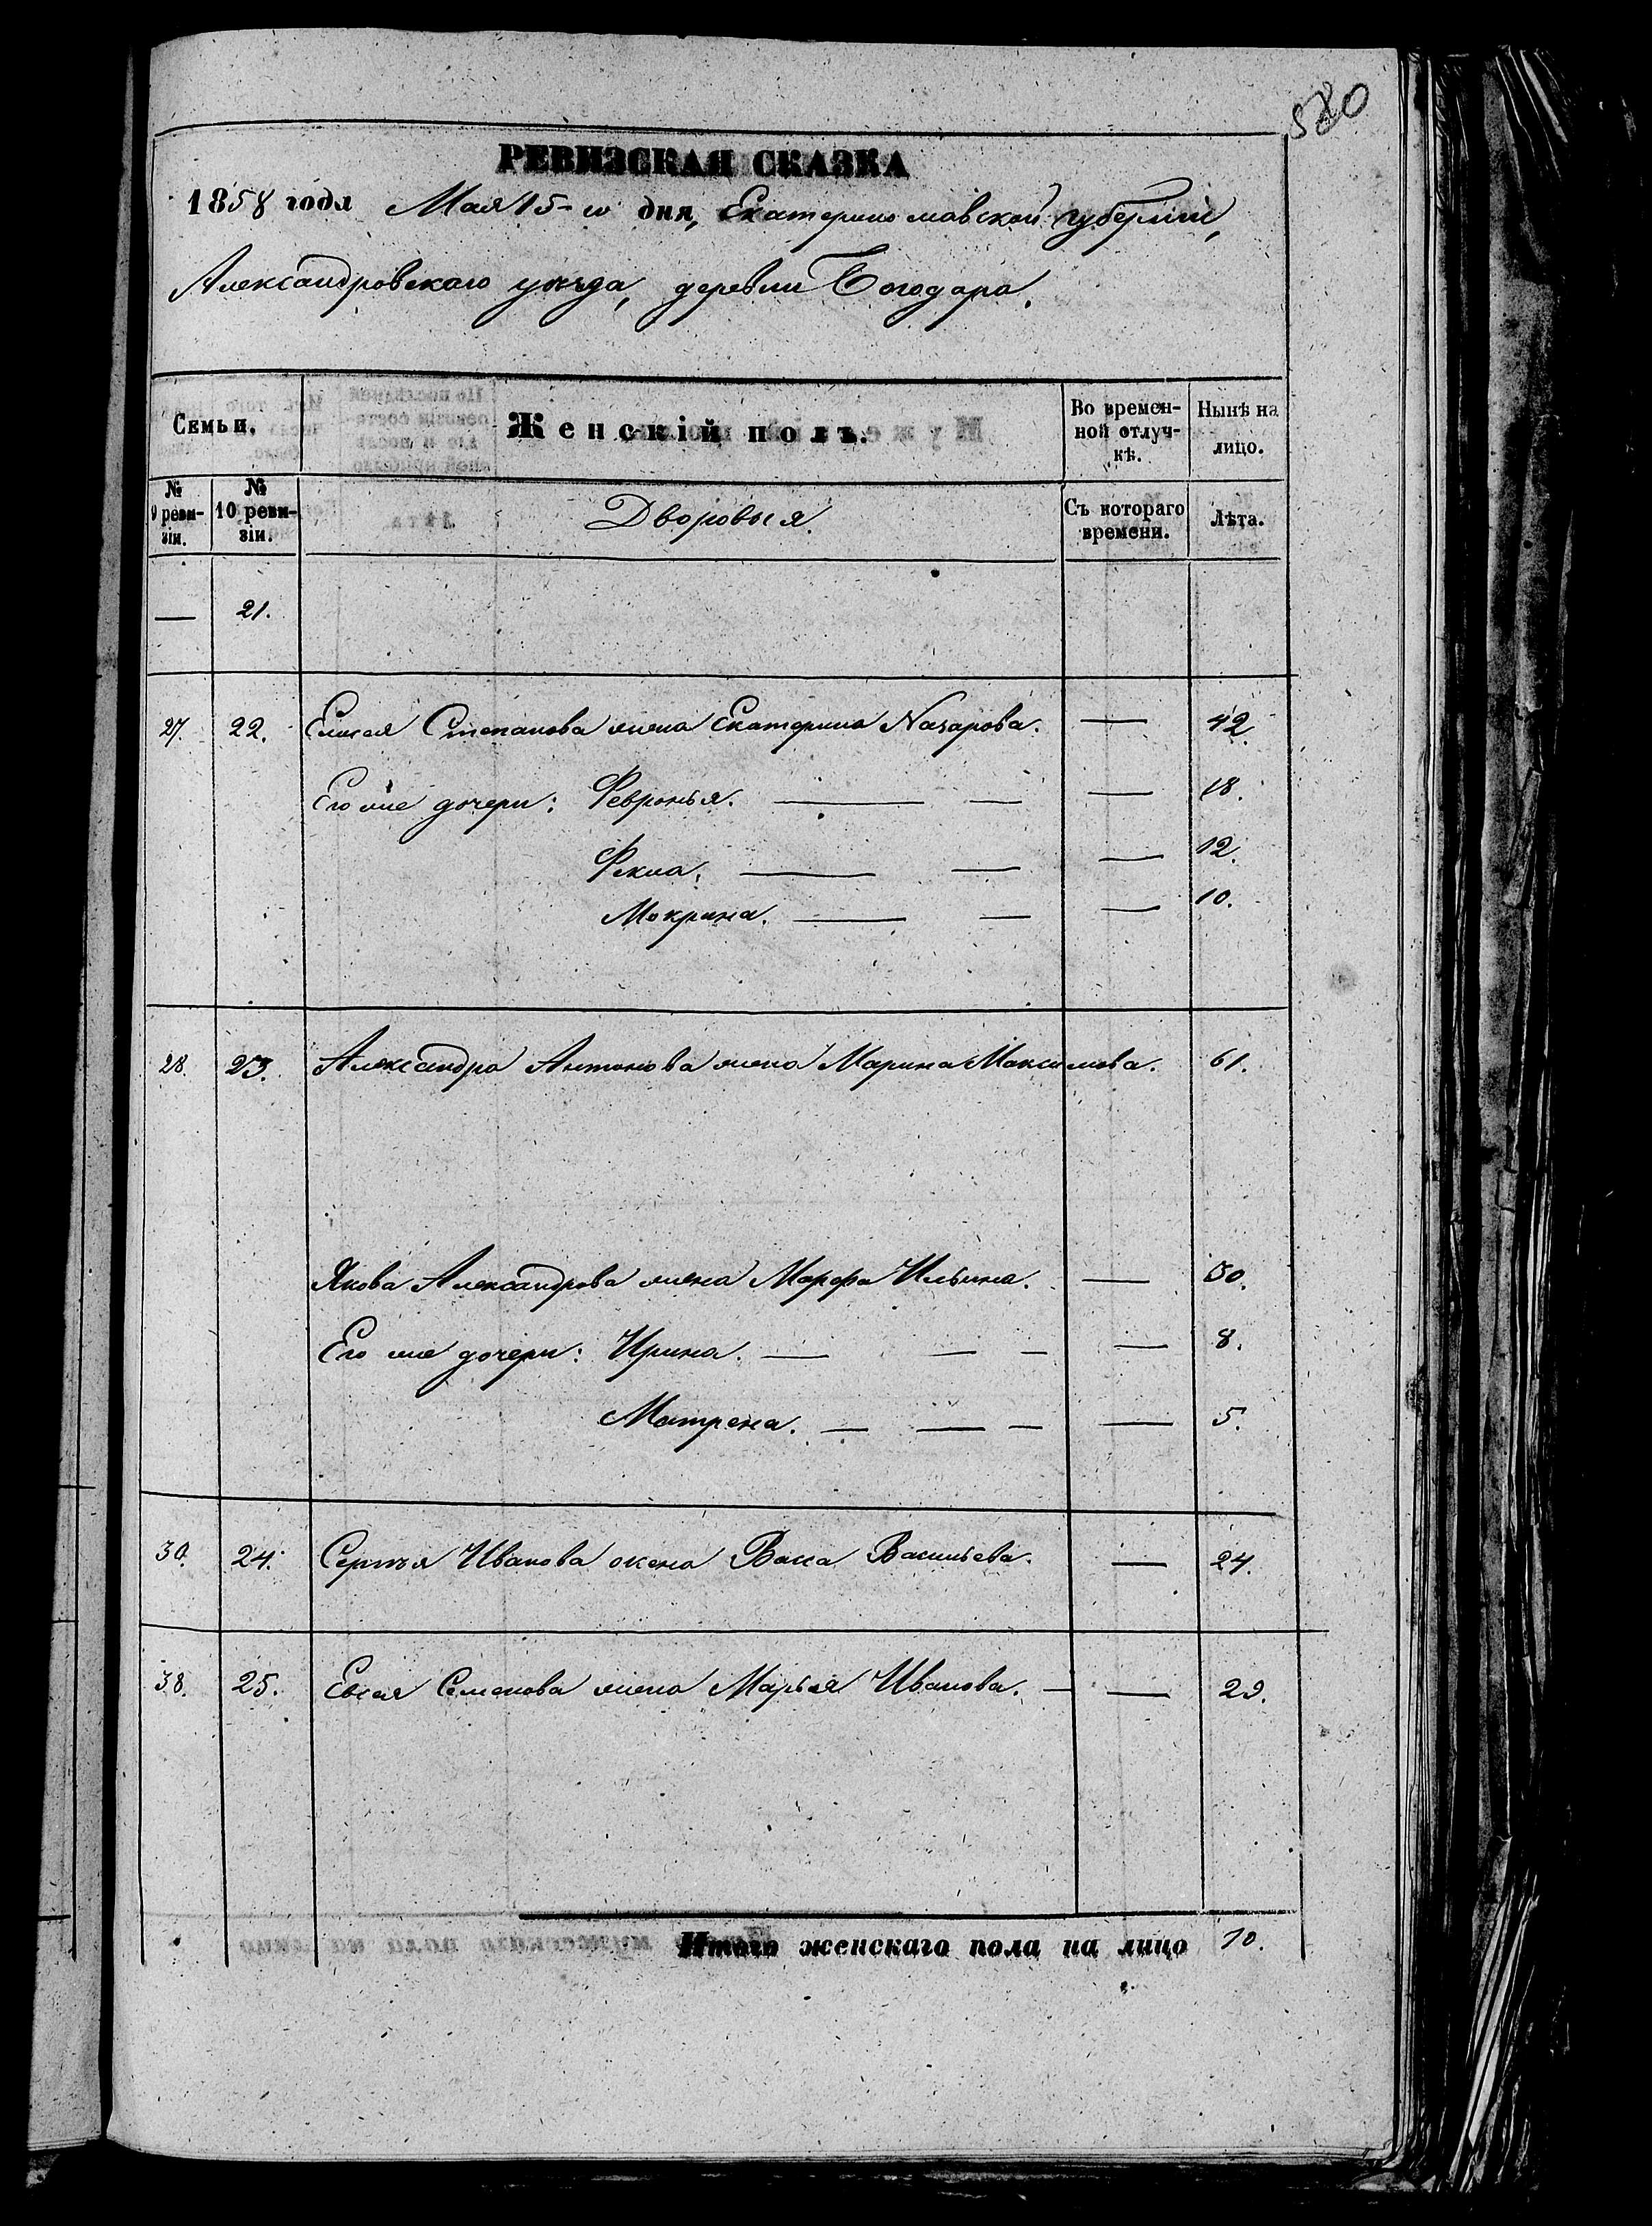 580
РЕВИЗСКАЯ СКАЗКА
1858 года Мая 15-го дня, Екатеринославской губерніи,
Александровскаго уѣзда, деревни Богодара.
Семьи.
Женскій полъ.
Во времен-
ной отлуч-
кѣ.
Нынѣ на
лицо.
№
9 реви-
зіи.
№
10 реви-
зіи.
Дворовыя.
Съ котораго
времени.
Лѣта.
— 21.
27. 22. Елисея Степанова жена Екатерина Назарова. — 42.
Его же дочери: Февронья. — — — 18.
Фекла. — — — 12.
Мокрина. — — — 10.
28. 23. Александра Антонова жена Марина Максимова. 61.
Якова Александрова жена Марфа Ильина. — 30.
Его же дочери: Ирина. — — — — 8.
Матрена. — — — — 5.
30. 24. Сергѣя Иванова жена Васса Васильева. — 24.
38. 25. Евсея Семенова жена Марья Иванова. — — 29.
Итого женскаго пола на лицо 10.